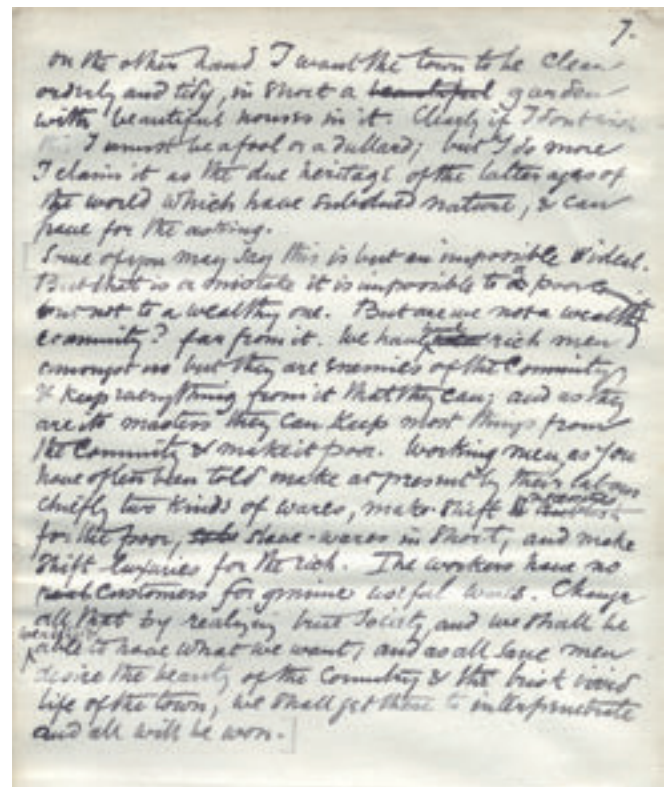 7.
on the other hand I want the town to be clean
orderly and tidy, in short a beautiful garden
with beautiful houses in it. Clearly if I dont
I must be a fool or a dullard; but I do more
I claim it as the due heritage of the latter ages of
the world which have subdued nature, & can
have for the asking.
[Some of you may say this is but an impossible ideal.
But that is a mistake it is impossible to a poor
but not to a wealthy one. But are we not a wealthy
community? far from it. We have rich men
amongst us but they are enemies of the Community
& keep everything from it that they can; and as they
are its masters they can keep most things from
the Community & make it poor. Working men, as you
have often been told make at present by their labour
chiefly two kinds of wares, make-shift
for the poor, slave-wares in short, and make
shift luxuries for the rich. The workers have no
real customers for genuine useful wares. Change
all that by realizing true Society, and we shall be
able to have what we want; and as all sane men
desire the beauty of the Country & the brisk vivid
life of the town, we shall get these to interpenetrate
and all will be won.]